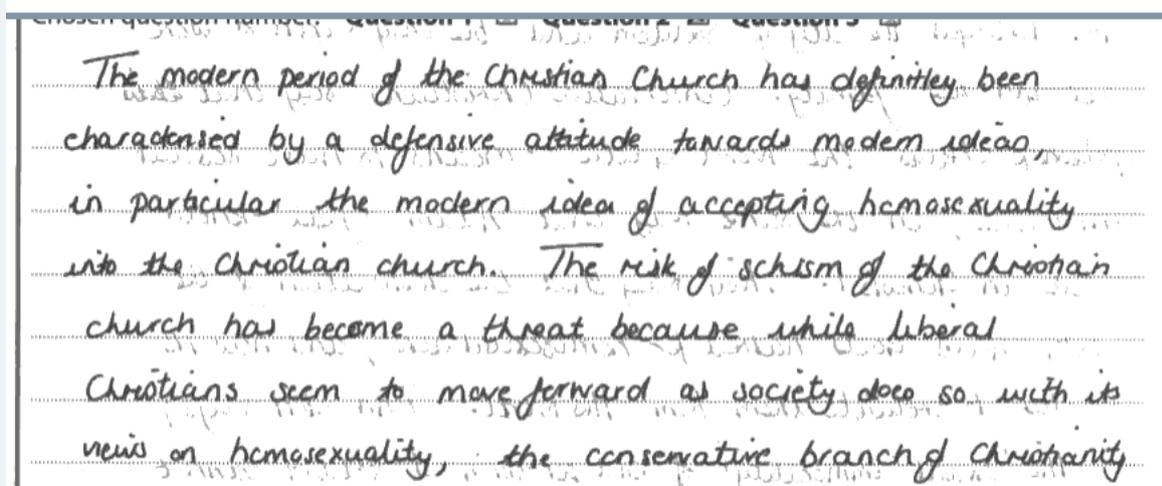 Chosen question number: Question 1 Question 2 Question 3
The modern period of the Christian Church has definitley been
characterised by a defensive attitude towards modern ideas,
in particular the modern idea of accepting homosexuality
into the Christian church. The risk of schism of the Christian
church has become a threat because while liberal
Christians seem to move forward as society does so with its
views on homosexuality, the conservative branch of Christianity